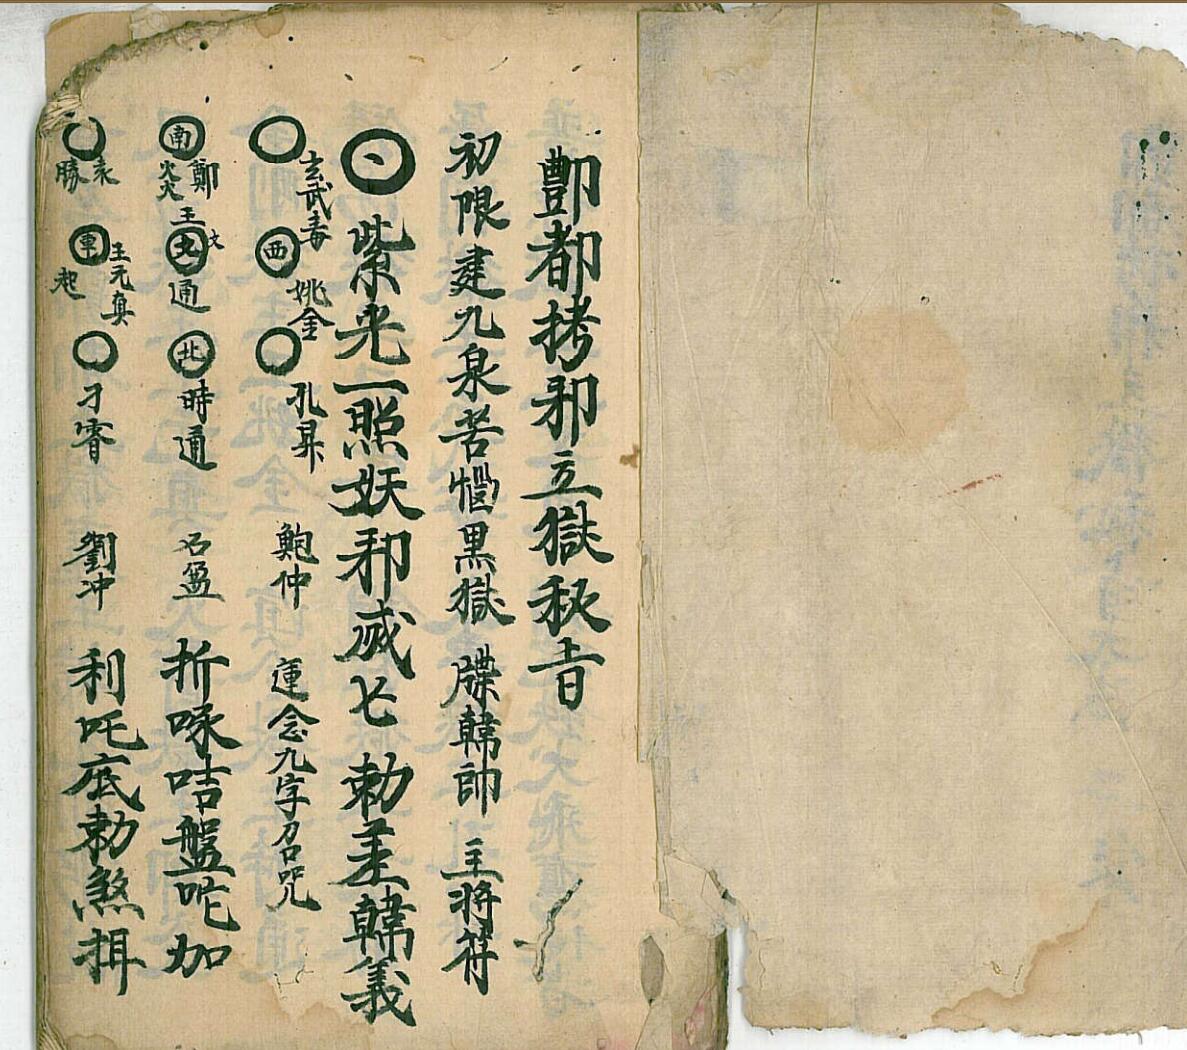 酆都拷邪立獄秘旨
初限建九泉苦惱黑獄 牒韓帥 主將符
紫光一照妖邪滅七 勅差韓義
玄武毒 西 姚金 孔昇 鮑仲 運念九字召咒
南 鄭 火火 王 通 北 時通 石盈 折啄咭盤咜加
袁 勝 東 王元真 起 刁霄 劉冲 利吒底勅煞揖